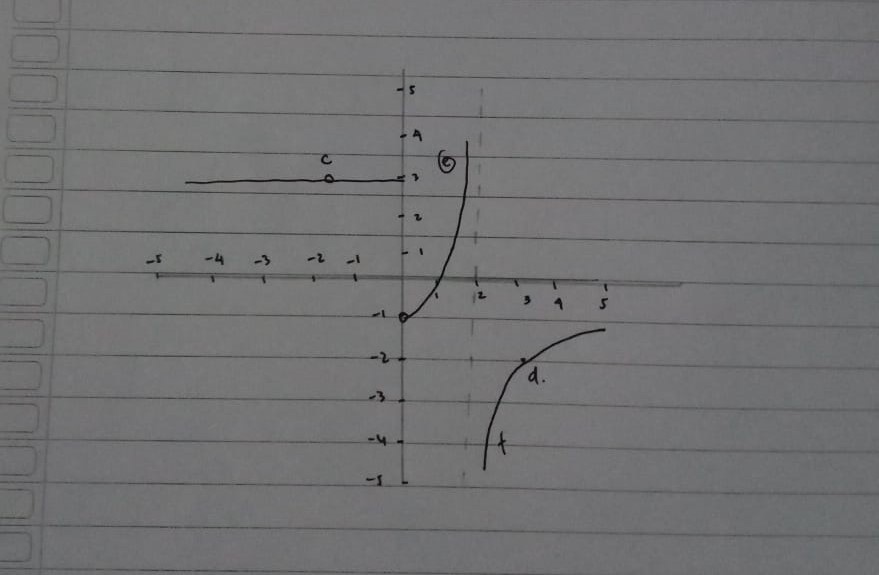 5
4
c
e
3
2
1
-5 -4 -3 -2 -1
1 2 3 4 5
-1
-2
d.
-3
-4
f
-5